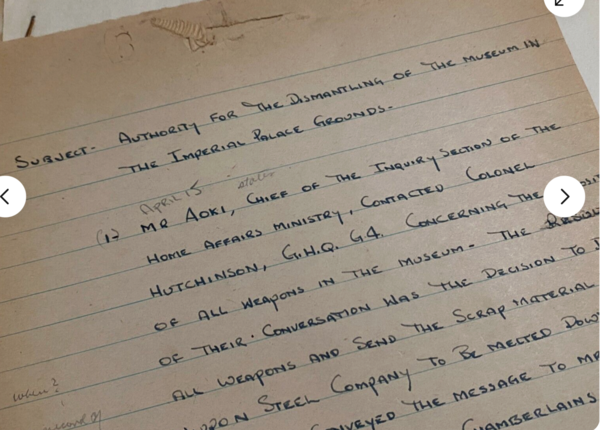 SUBJECT- AUTHORITY FOR THE DISMANTLING OF THE MUSEUM IN
THE IMPERIAL PALACE GROUNDS-
APRIL 15 states
(1- MR AOKI, CHIEF OF THE INQUIRY SECTION OF THE
HOME AFFAIRS MINISTRY, CONTACTED COLONEL
HUTCHINSON, G.H.Q. G4. CONCERNING THE
OF ALL WEAPONS IN THE MUSEUM- THE
OF THEIR CONVERSATION WAS THE DECISION TO
ALL WEAPONS AND SEND THE SCRAP MATERIAL
when?
STEEL COMPANY TO BE MELTED DOW
THE MESSAGE TO MR
CHAMBERLAINS